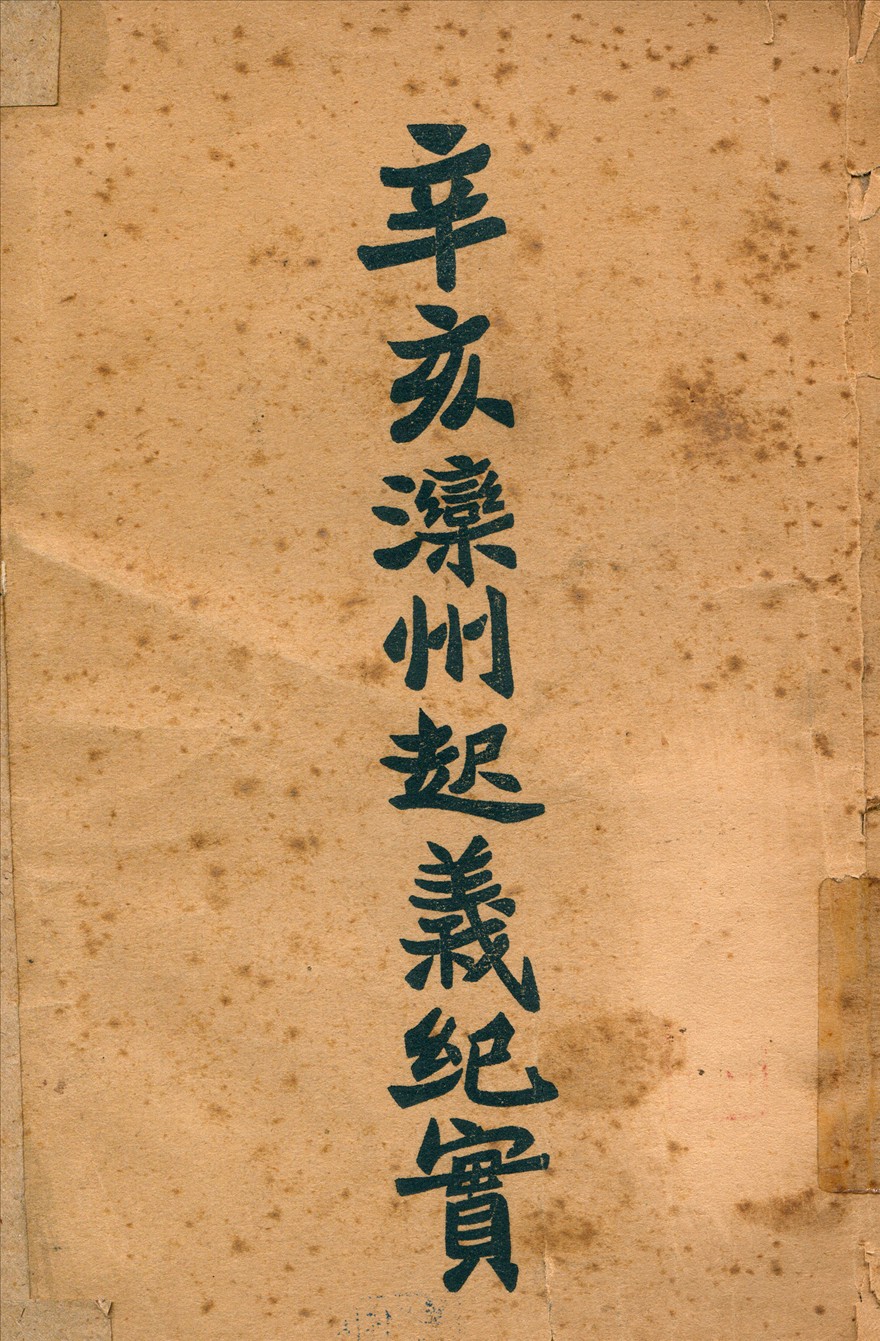 辛亥灤州起義紀實